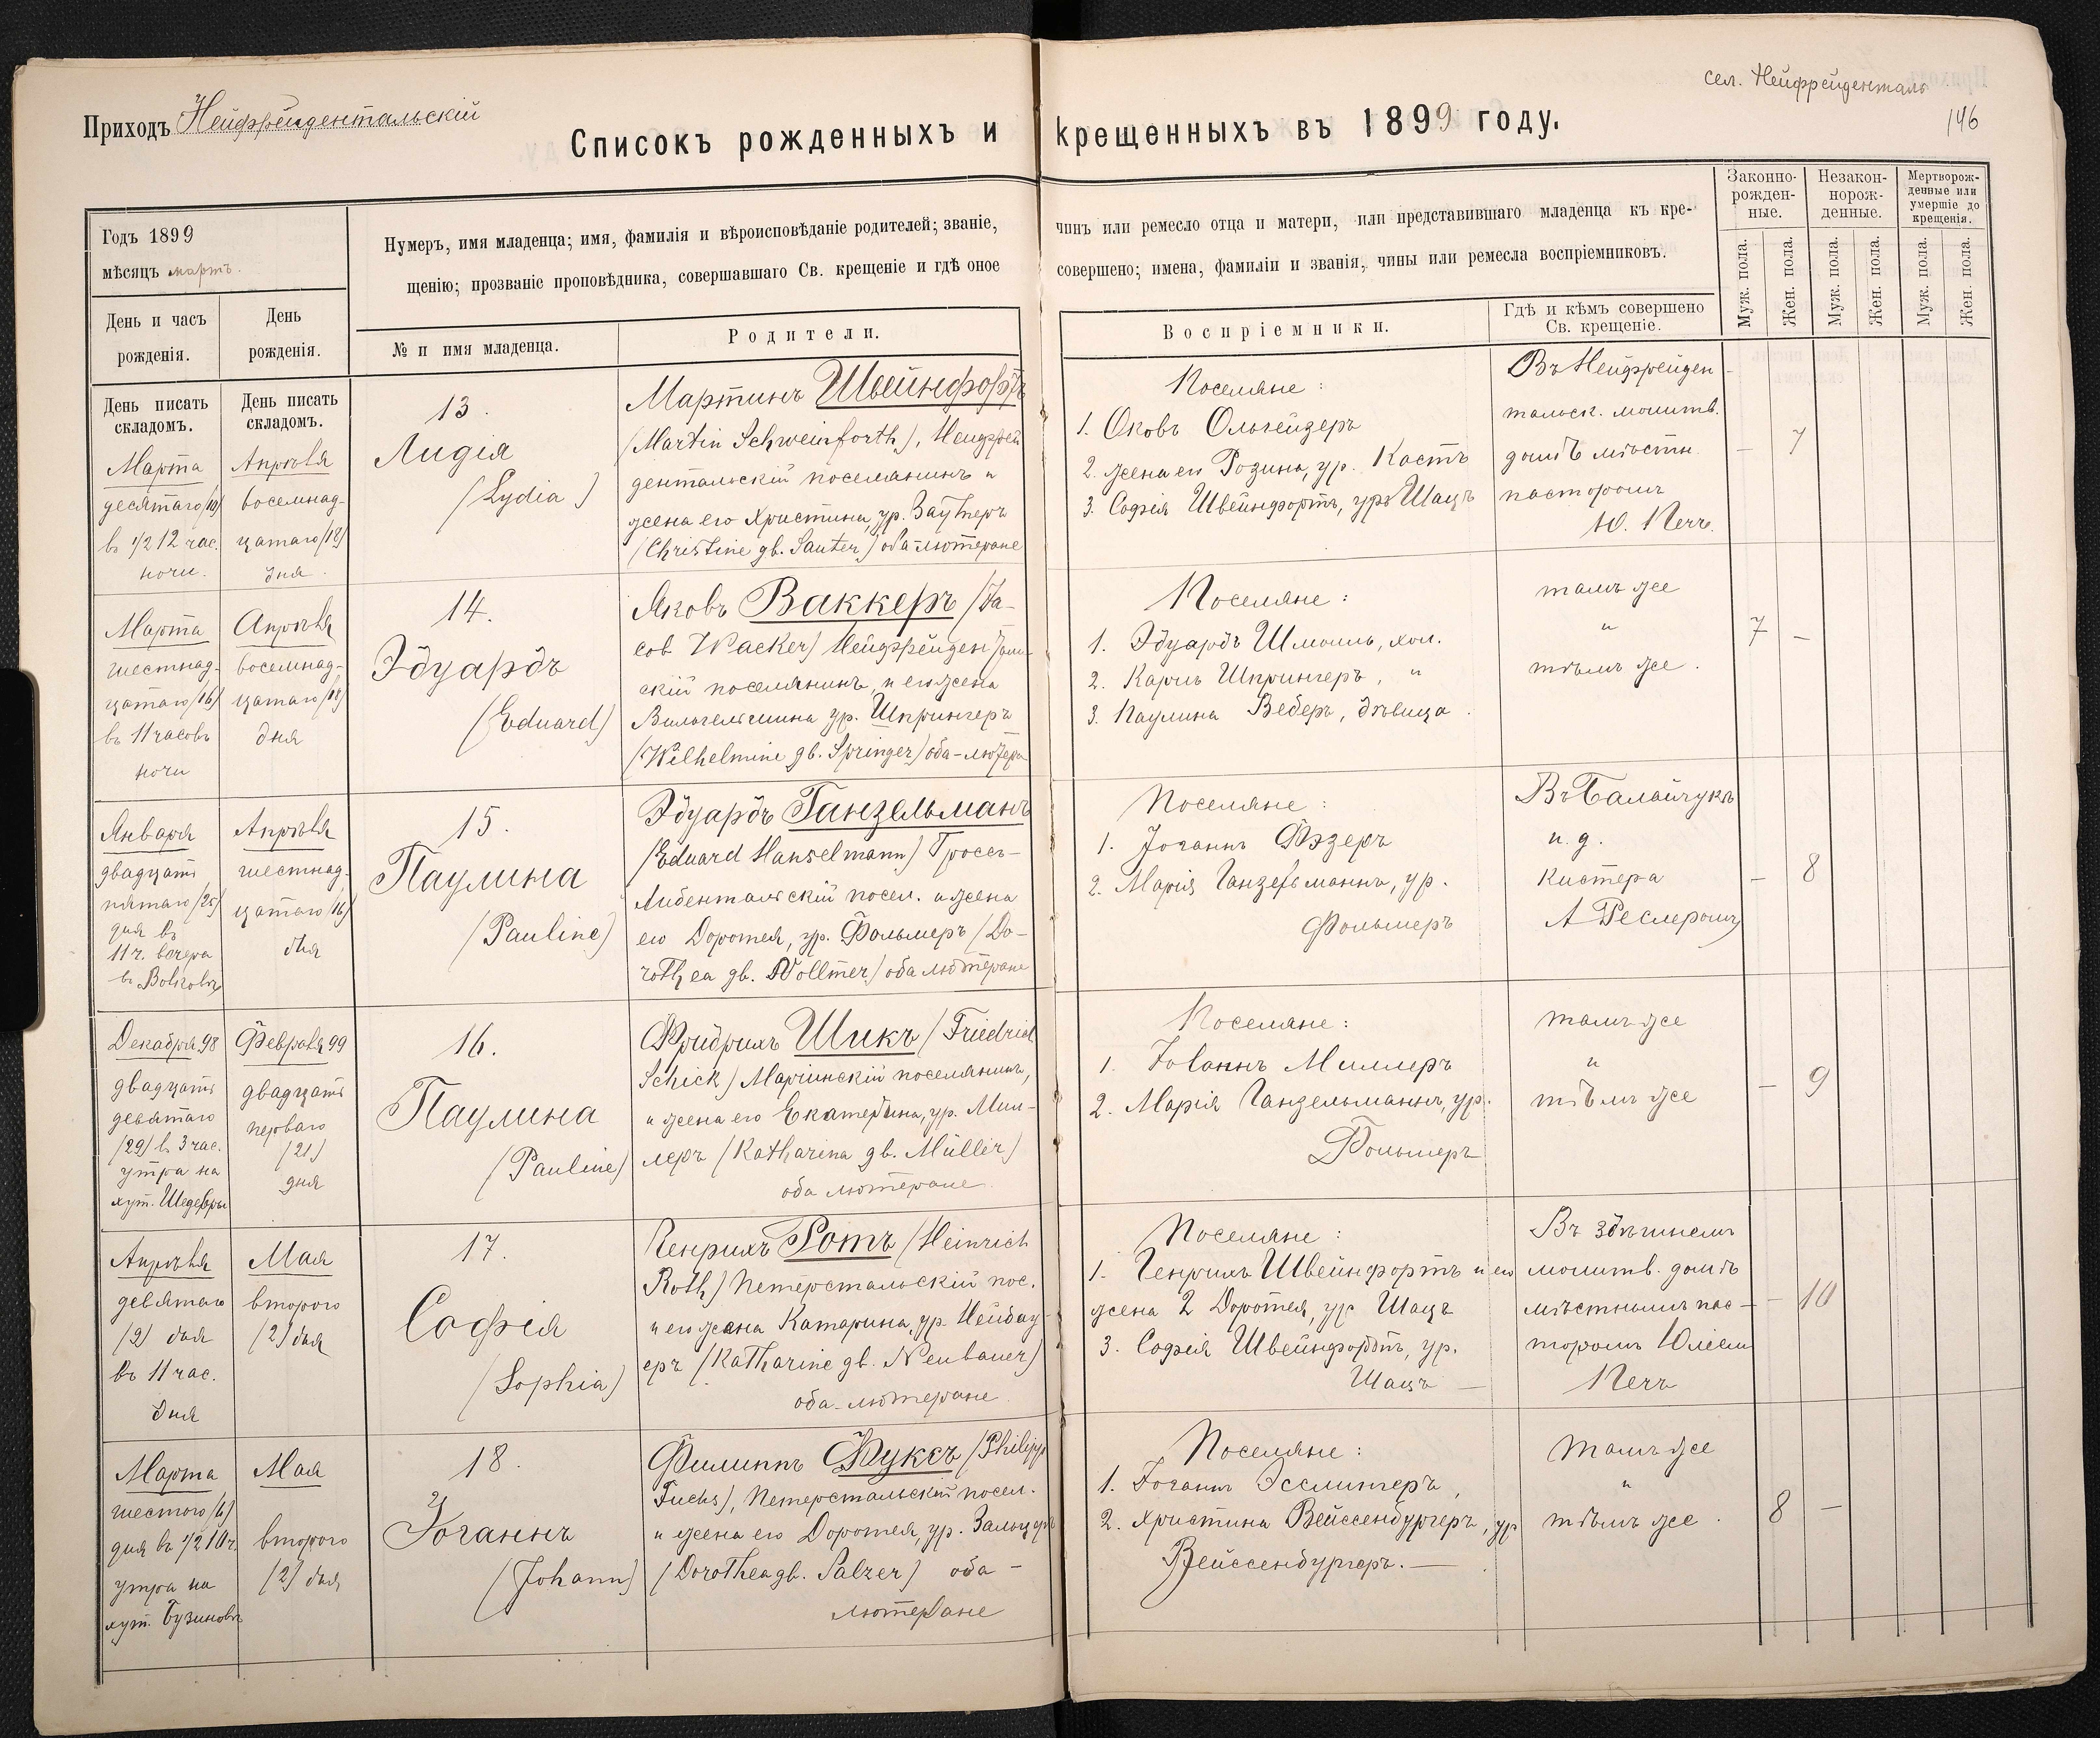 Приходъ Нейфрейдентальскій
сел. Нейфрейденталь
146
Списокъ рожденныхъ и крещенныхъ въ 1899 году.
Годъ 1899
мѣсяцъ мартъ.
Нумеръ, имя младенца; имя, фамилія и вѣроисповѣданіе родителей; званіе, чинъ или ремесло отца и матери, или представившаго младенца къ кре-
щенію; прозваніе проповѣдника, совершавшаго Св. крещеніе и гдѣ оное совершено; имена, фамиліи и званія, чины или ремесла воспріемниковъ.
Законно-
рожден-
ные.
Незакон-
норож-
денные.
Мертворож-
денные или
умершіе до
крещенія.
Муж. пола.
Жен. пола.
Муж. пола.
Жен. пола.
Муж. пола.
Жен. пола.
День и часъ
рожденія.
День
рожденія.
№ и имя младенца.
Родители.
Воспріемники.
Гдѣ и кѣмъ совершено
Св. крещеніе.
День писать
складомъ.
День писать
складомъ.
Марта
десятаго /10/
въ 1/2 12 час.
ночи.
Апрѣля
восемнад-
цатаго /18/
дня.
13.
Лидія
(Lydia)
Мартинъ Швейнфортъ
(Martin Schweinforth), Нейфрей
дентальскій поселянинъ и
жена его Христина, ур. Заутеръ
(Christine gb. Sauter) оба лютеране
Поселяне:
1. Яковъ Ользейзеръ
2. жена его Розина, ур. Кастъ
3. Софія Швейнфортъ, ур. Шацъ
Въ Нейфрейден
тальск. молитв.
домѣ мѣстн.
пасторомъ
Ю. Печъ.
— 7
Марта
шестнад-
цатаго /16/
въ 11 часовъ
ночи
Апрѣля
восемнад-
цатаго /18/
дня
14.
Эдуардъ
(Eduard)
Яковъ Ваккеръ /Ja-
cob Wacker/ Нейфрейденталь-
скій поселянинъ, и его жена
Вильгельмина ур. Шпрингеръ
/Wilhelmine gb. Springer/ оба-лютера
Поселяне:
1. Эдуардъ Шмоль, хол.
2. Карлъ Шпрингеръ, "
3. Паулина Веберъ, дѣвица.
тамъ же
"
тѣмъ же.
7 —
Января
двадцать
пятаго /25/
дня въ
11 ч. вечера
въ Волковѣ
Апрѣля
шестнад-
цатаго /16/
дня
15.
Паулина
(Pauline)
Эдуардъ Ганзельманъ
/Eduard Hanselmann/ Гросъ-
Либентальскій посел. и жена
его Доротея, ур. Фольмеръ /Do-
rothea gb. Vollmer/ оба лютеране
Поселяне:
1. Іоганнъ Фэзеръ
2. Марія Ганзельманнъ, ур.
Фольмеръ
Въ Балайчукѣ
и. д.
Кистера
А Реслеромъ
— 8
Декабря 98
двадцать
девятаго
/29/ въ 3 час.
утра на
хут. Шедевры
Февраля 99
двадцать
перваго
/21/
дня
16.
Паулина
(Pauline)
Фридрихъ Шикъ /Friedrich
Schick/ Маріинскій поселянинъ,
и жена его Екатерина, ур. Мил-
леръ /Katharina gb. Müller/
оба лютеране.
Поселяне:
1. Іоганнъ Миллеръ
2. Марія Ганзельманнъ, ур.
Фольмеръ
тамъ же
"
тѣмъ же
— 9
Апрѣля
девятаго
/9/ дня
въ 11 час.
дня
Мая
второго
/2/ дня
17.
Софія
(Sophia)
Генрихъ Ротъ /Heinrich
Roth/ Петерстальскій пос.
и его жена Катарина, ур. Нейбау-
еръ /Katharine gb. Neubauer/
оба-лютеране.
Поселяне:
1. Генрихъ Швейнфортъ и его
жена 2 Доротея, ур Шацъ
3. Софія Швейнфортъ, ур.
Шацъ —
Въ здѣшнемъ
молитв. домѣ
мѣстнымъ пас-
торомъ Юліемъ
Печъ
— 10
Марта
шестого /6/
дня въ 1/2 10 ч.
утра на
хут. Бузиновѣ
Мая
второго
/2/ дня
18.
Іоганнъ
(Johann)
Филиппъ Фуксъ /Philipp
Fuchs/, Петерстальскій посел.
и жена его Доротея, ур. Зальцеръ
/Dorothea gb. Salzer/ оба —
лютеране
Поселяне:
1. Іоганнъ Эсслингеръ,
2. Христина Вейссенбургеръ, ур
Вейссенбургеръ. —
Тамъ же
"
тѣмъ же.
8 —